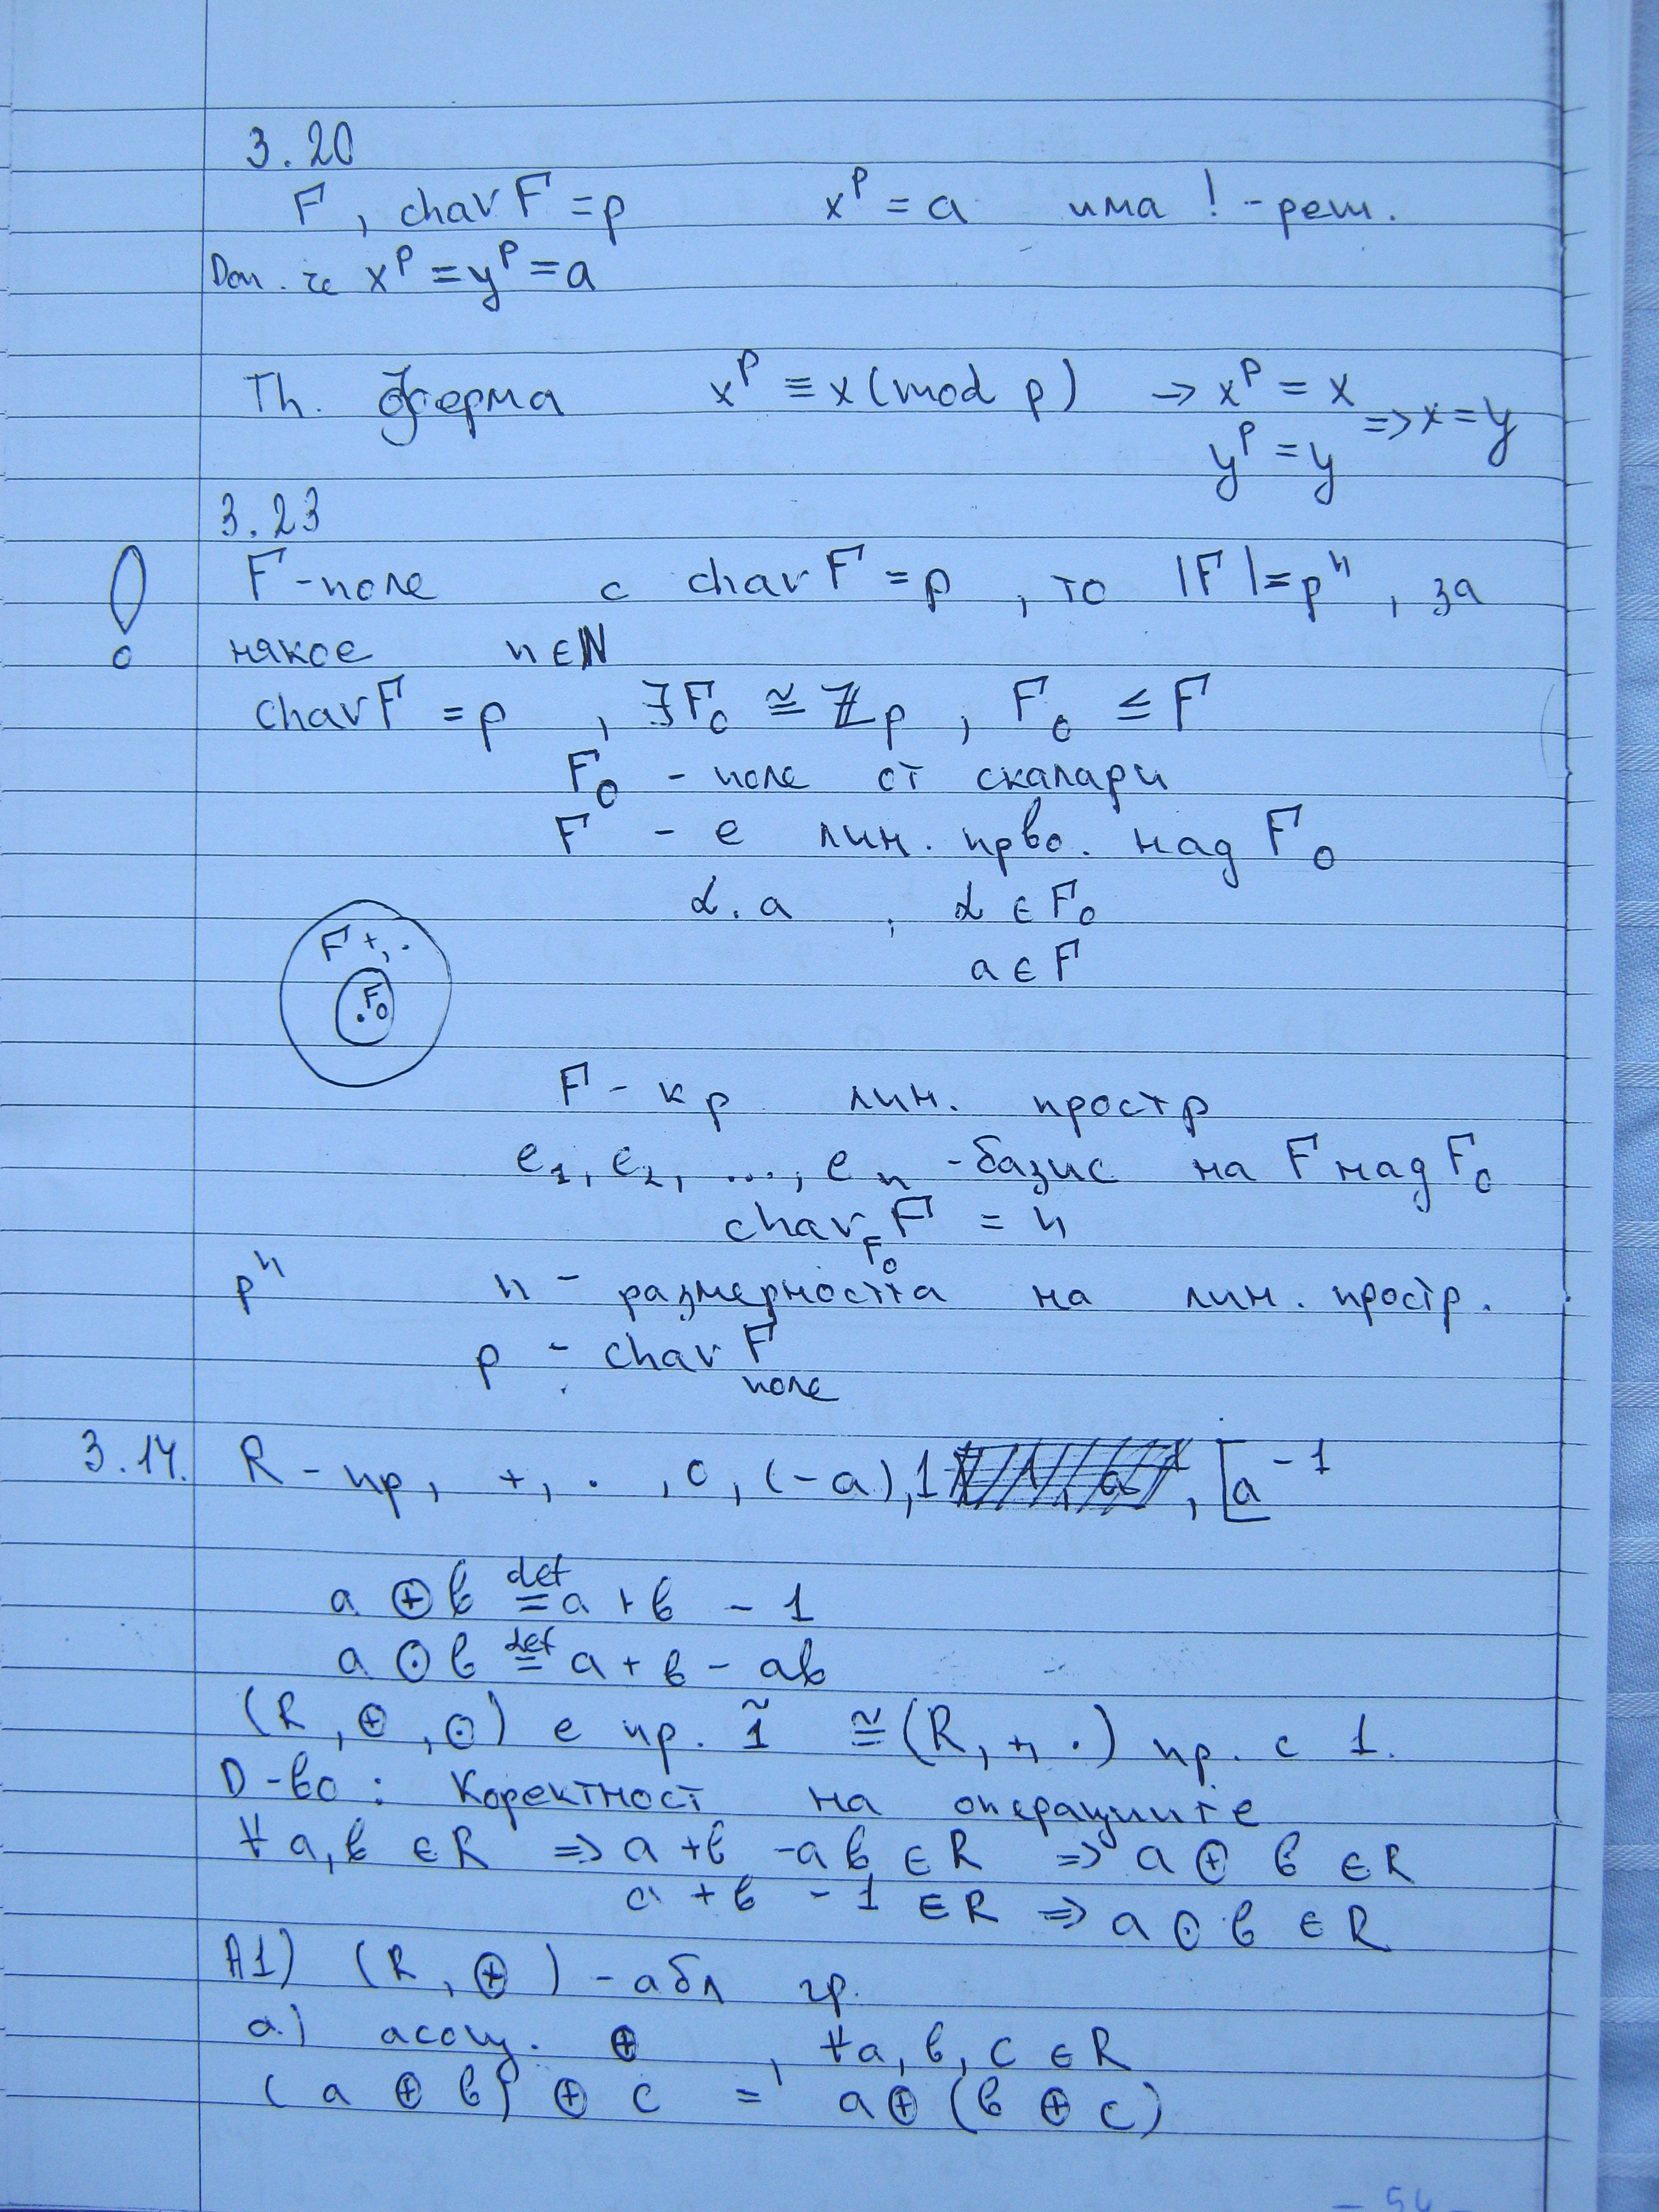 3.20
F, char F = p    x^p = a    има ! - реш.
Доп. че x^p = y^p = a
Th. Ферма    x^p ≡ x (mod p) → x^p = x
y^p = y ⇒ x = y
3.23
F - поле    с char F = p, то |F| = p^n, за
някое    n ∈ ℕ
char F = p, ∃F₀ ≅ ℤ_p, F₀ ≤ F
F₀ - поле от скалари
F - е лин. прво. над F₀
α.a, α ∈ F₀
a ∈ F
F +, .
. F₀
F - кр лин. простр
e₁, e₂, ..., e_n - базис на F над F₀
char_{F₀} F = n
p^n    n - размерността на лин. простр.
p - char F
поле
3.14. R - пр, +, ., 0, (-a), 1, [a^{-1}
a ⊕ b ≝ a + b - 1
a ⊙ b ≝ a + b - ab
(R, ⊕, ⊙) е пр. 1̃ ≅ (R, +, .) пр. с 1.
D-во: Коректност на операциите
∀ a, b ∈ R ⇒ a + b - ab ∈ R ⇒ a ⊕ b ∈ R
a + b - 1 ∈ R ⇒ a ⊙ b ∈ R
A1) (R, ⊕) - абл гр.
a) асоц. ⊕, ∀a, b, c ∈ R
(a ⊕ b) ⊕ c = a ⊕ (b ⊕ c)
- 54 -